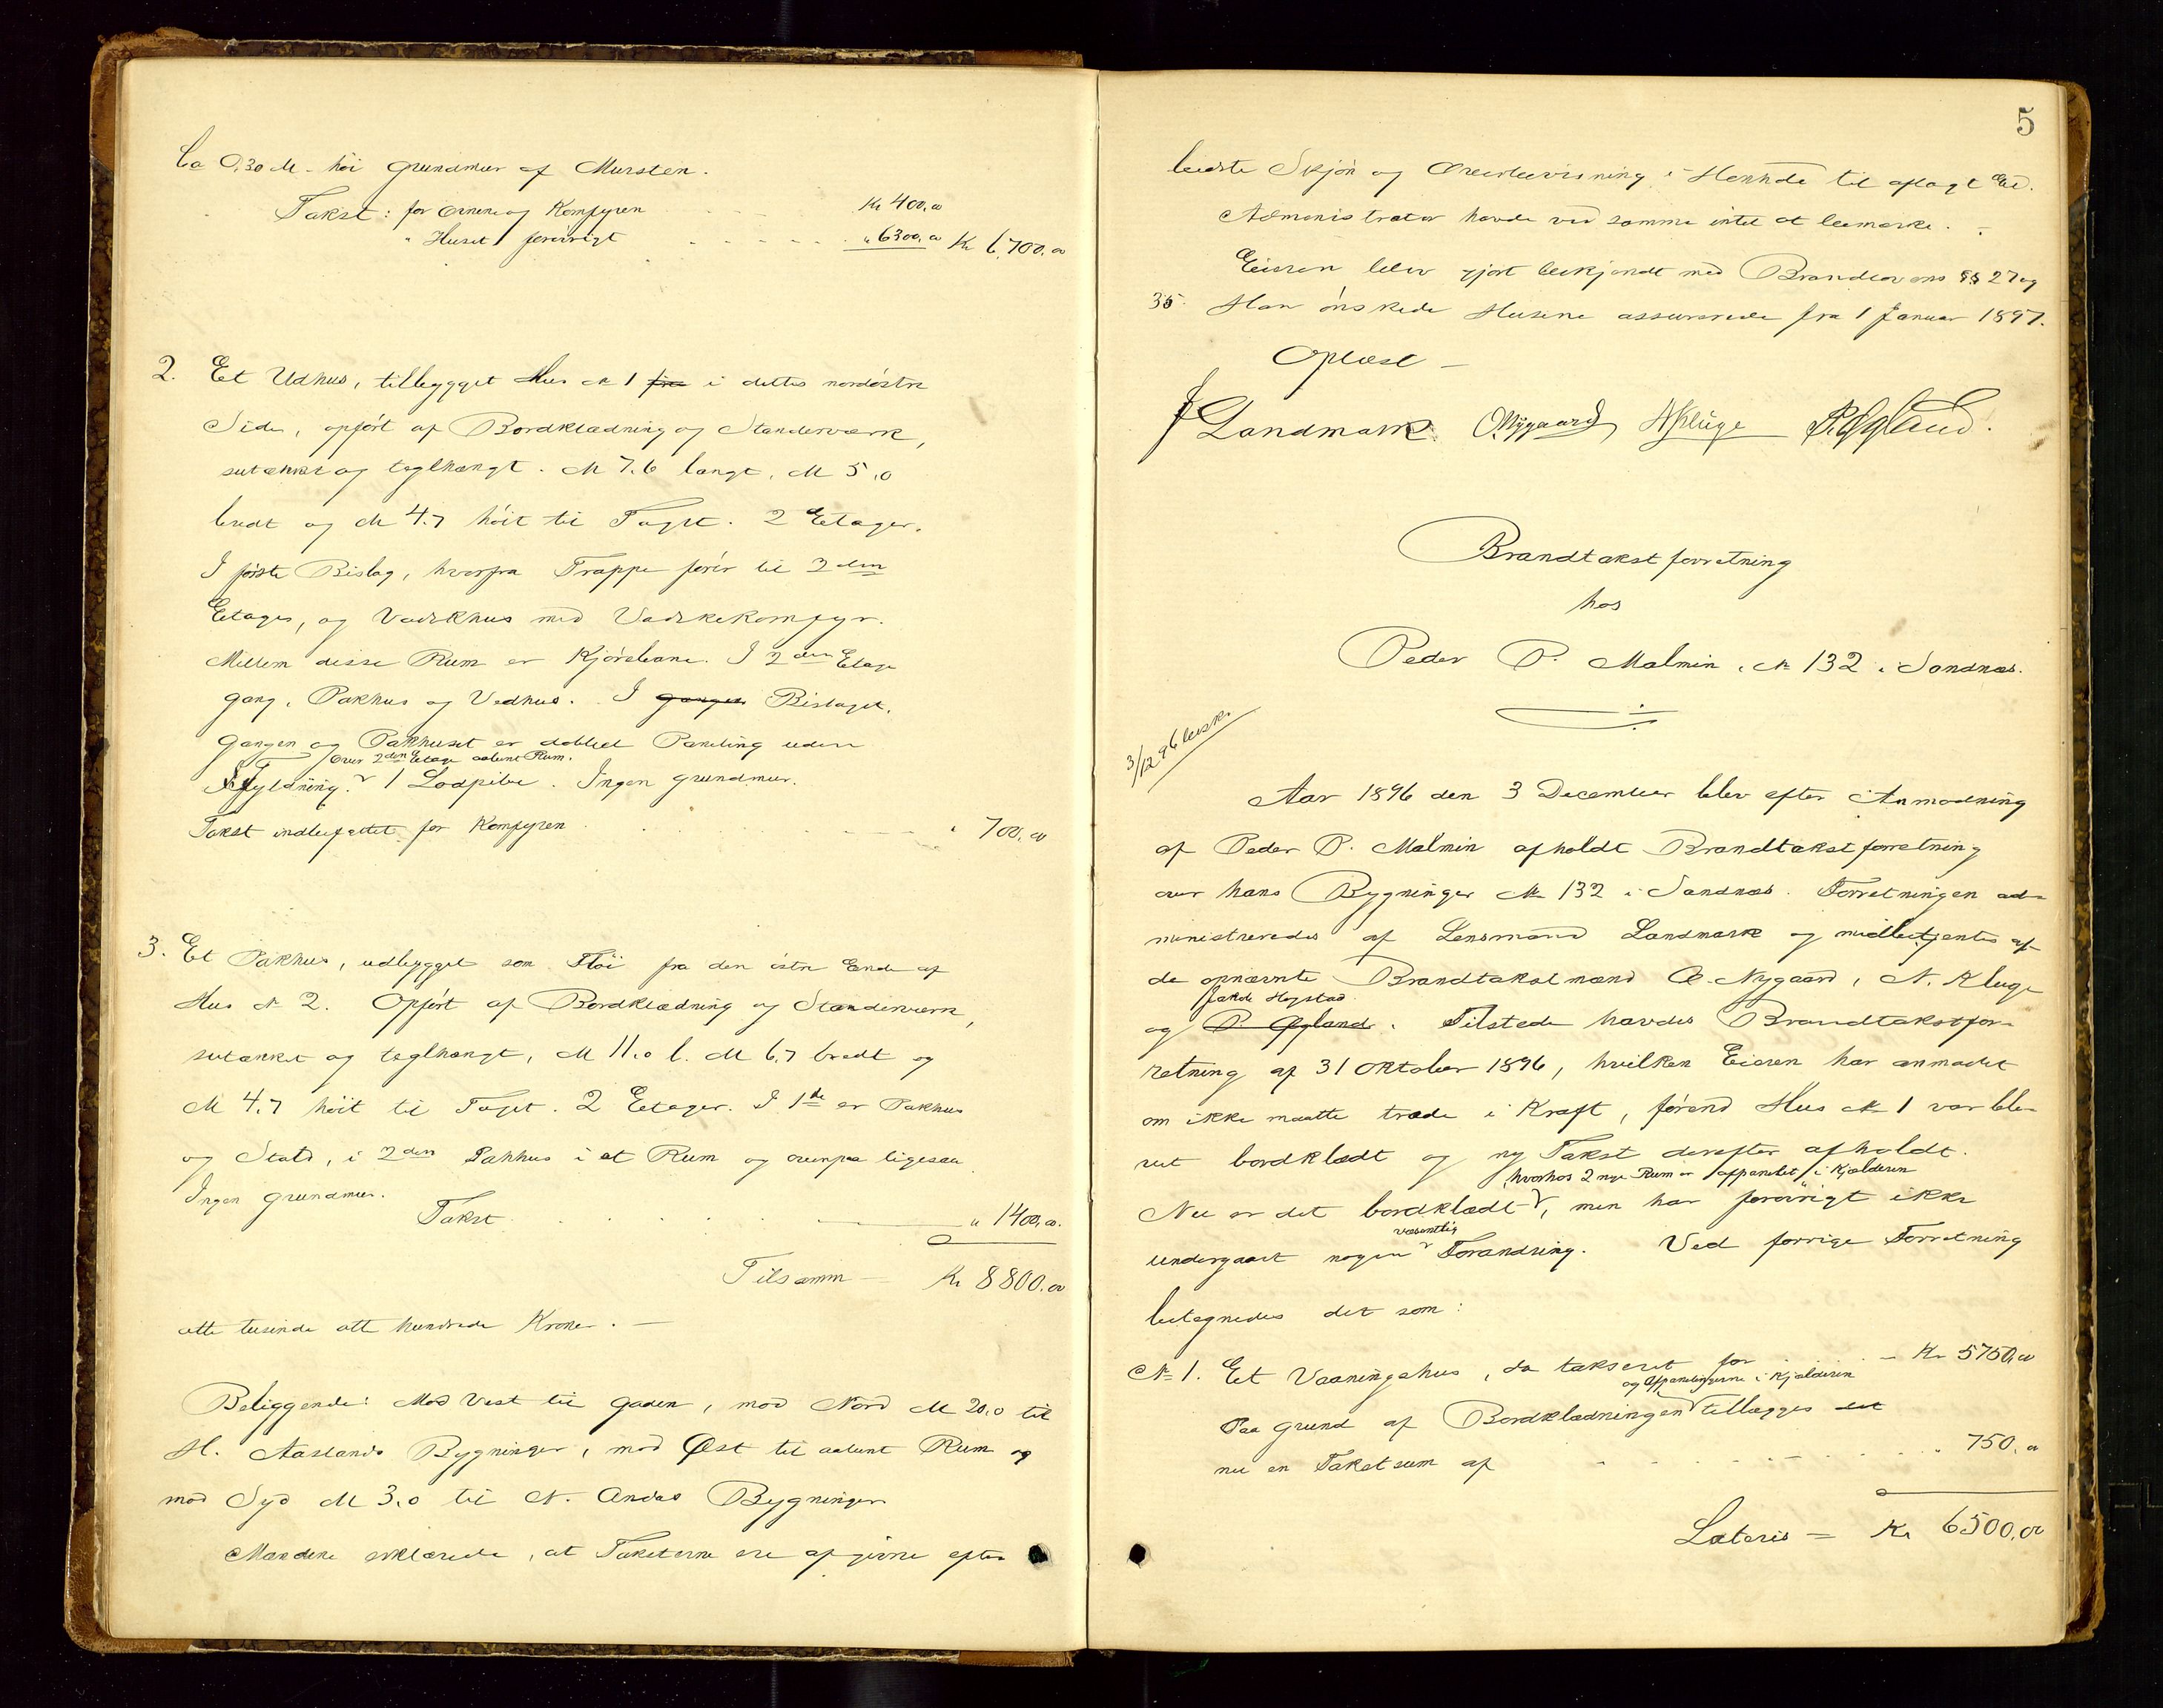 Ca 0,30 M. höi Grundmur af Mursten.
Takst: for Ovnene og Komfyren Kr 400,00
" Huset forövrigt " 6300,00 Kr 6,700,00
2. Et Udhus, tilbygget Hus № 1 fra i dettes nordöstre
Side, opfört af Bordklædning og Standerværk,
sutækket og teglhængt. M 7.6 langt, M 5,0
bredt og M 4.7 höit til Taget. 2 Etager.
I förste Bislag, hvorfra Trappe förer til 2den
Etage, og Vadskhus med Vadskekomfyr.
Mellem disse Rum er Kjörebane. I 2den Etage
Gang, Pakhus og Vedhus. I Gangen Bislaget,
Gangen og Pakhuset er dobbel Paneling uden
over 2den Etage aabent Rum.
Ifyldning. 1 Lodpibe. Ingen Grundmur.
Takst indbefattet for Komfyren " 700,00
3. Et Pakhus, udbygget som Flöi fra den östre Ende af
Hus № 2. Opfört af Bordklædning og Standerværk,
sutækket og teglhængt, M 11.0 l. M 6.7 bredt og
M 4.7 höit til Taget. 2 Etager. I 1ste er Pakhus
og Stald, i 2den Pakhus i et Rum og ovenpaa ligesaa.
Ingen Grundmur.
Takst " 1400,00.
Tilsamm — Kr 8800,00
otte tusinde ott hundrede Kroner. —
Beliggende: Mod Vest til Gaden, mod Nord M 20,0 til
H. Aaslands Bygninger, mod Øst til aabent Rum og
mod Syd M 3,0 til N. Andas Bygninger
Mændene erklærede, at Taksterne ere afgivne efter
5
bedste Skjön og Overbevisning i Henhold til aflagt Ed.
Administrator havde ved samme intet at bemærke. -
Eieren blev gjort bekjendt med Brandlovens §§ 27 og
35. Han önskede Husene assurerede fra 1 Januar 1897.
Oplæst —
Landmark. O. Nygaard N Kluge P. Øgland.
Brandtakstforretning
hos
Peder P. Malmin, № 132 i Sandnæs.
3/12 96 besk.
Aar 1896 den 3 December blev efter Anmodning
af Peder P. Malmin afholdt Brandtakstforretning
over hans Bygninger № 132 i Sandnæs. Forretningen ad-
ministreredes af Lensmand Landmark og midbetjentes af
de opnævnte Brandtakstmænd O. Nygaard, N. Kluge
Jakob Høgstad.
og P. Øgland. Tilstede havdes Brandtakstfor-
retning af 31 Oktober 1896, hvilken Eieren har anmodet
om ikke maatte træde i Kraft, förend Hus № 1 var ble-
vet bordklædt og ny Takst derefter afholdt.
hvorhos 2 nye Rum er afpanelet i Kjælderen
Nu er det bordklædt, men har forövrigt ikke
væsentlig
undergaaet nogen Forandring. Ved forrige Forretning
betegnedes det som:
№ 1. Et Vaaningshus, da takseret for — Kr 5750,00
og Afpanelingerne i Kjælderen
Paa Grund af Bordklædningen tillægges det
nu en Takstsum af " 750,00
Lateris — Kr 6500,00